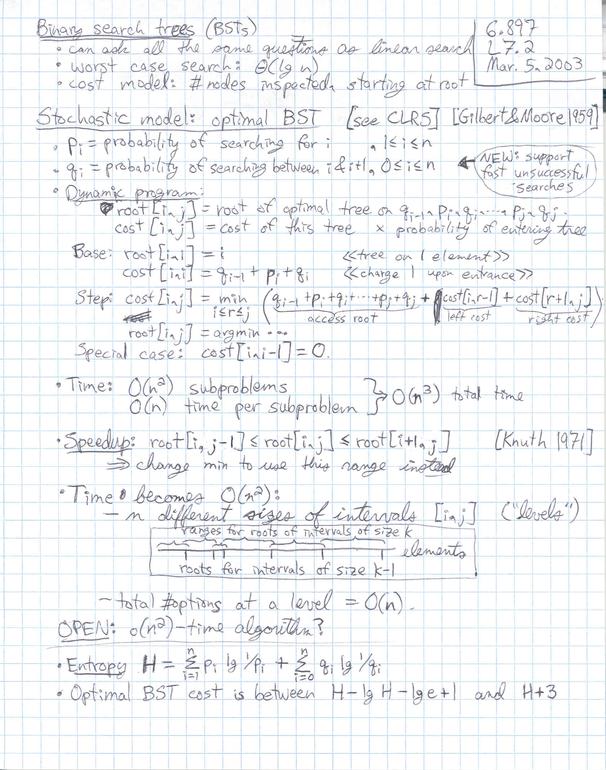 Binary search trees (BSTs)
• can ask all the same questions as linear search
• worst case search: Θ(lg n)
• cost model: # nodes inspected, starting at root
6.897
L7.2
Mar. 5, 2003
Stochastic model: optimal BST [see CLRS] [Gilbert & Moore 1959]
• pi = probability of searching for i , 1≤i≤n
• qi = probability of searching between i & i+1, 0≤i≤n
← NEW: support
fast unsuccessful
searches
• Dynamic program:
root[i,j] = root of optimal tree on qi-1, pi, qi, ..., pj, qj.
cost[i,j] = cost of this tree × probability of entering tree
Base: root[i,i] = i <<tree on 1 element>>
cost[i,i] = qi-1 + pi + qi <<charge 1 upon entrance>>
Step: cost[i,j] = min i≤r≤j (qi-1 + pi + qi + ... + pj + qj + cost[i,r-1] + cost[r+1,j])
access root left cost right cost
root[i,j] = argmin ...
Special case: cost[i,i-1] = 0.
• Time: O(n²) subproblems
O(n) time per subproblem } ⇒ O(n³) total time
• Speedup: root[i,j-1] ≤ root[i,j] ≤ root[i+1,j] [Knuth 1971]
⇒ change min to use this range instead
• Time becomes O(n²):
– n different sizes of intervals [i,j] ("levels")
ranges for roots of intervals of size k
elements
roots for intervals of size k-1
– total #options at a level = O(n).
OPEN: o(n²)-time algorithm?
• Entropy H = Σ i=1 n pi lg 1/pi + Σ i=0 n qi lg 1/qi
• Optimal BST cost is between H - lg H - lg e + 1 and H + 3